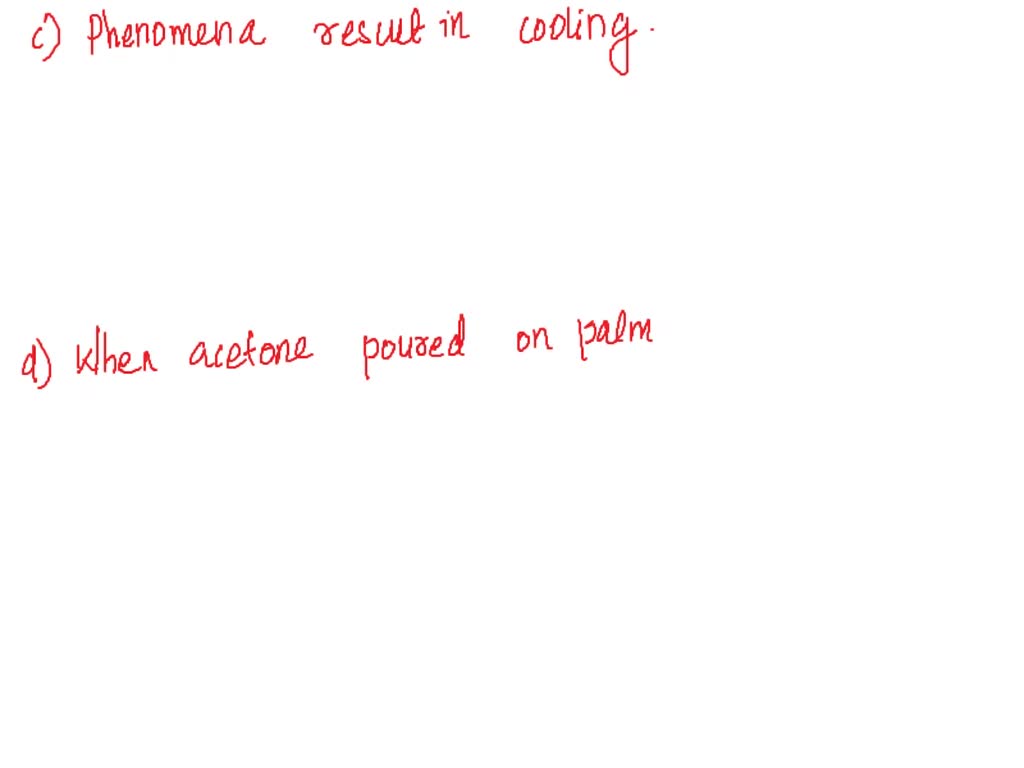 c) Phenomena result in cooling.
d) When acetone poured on palm